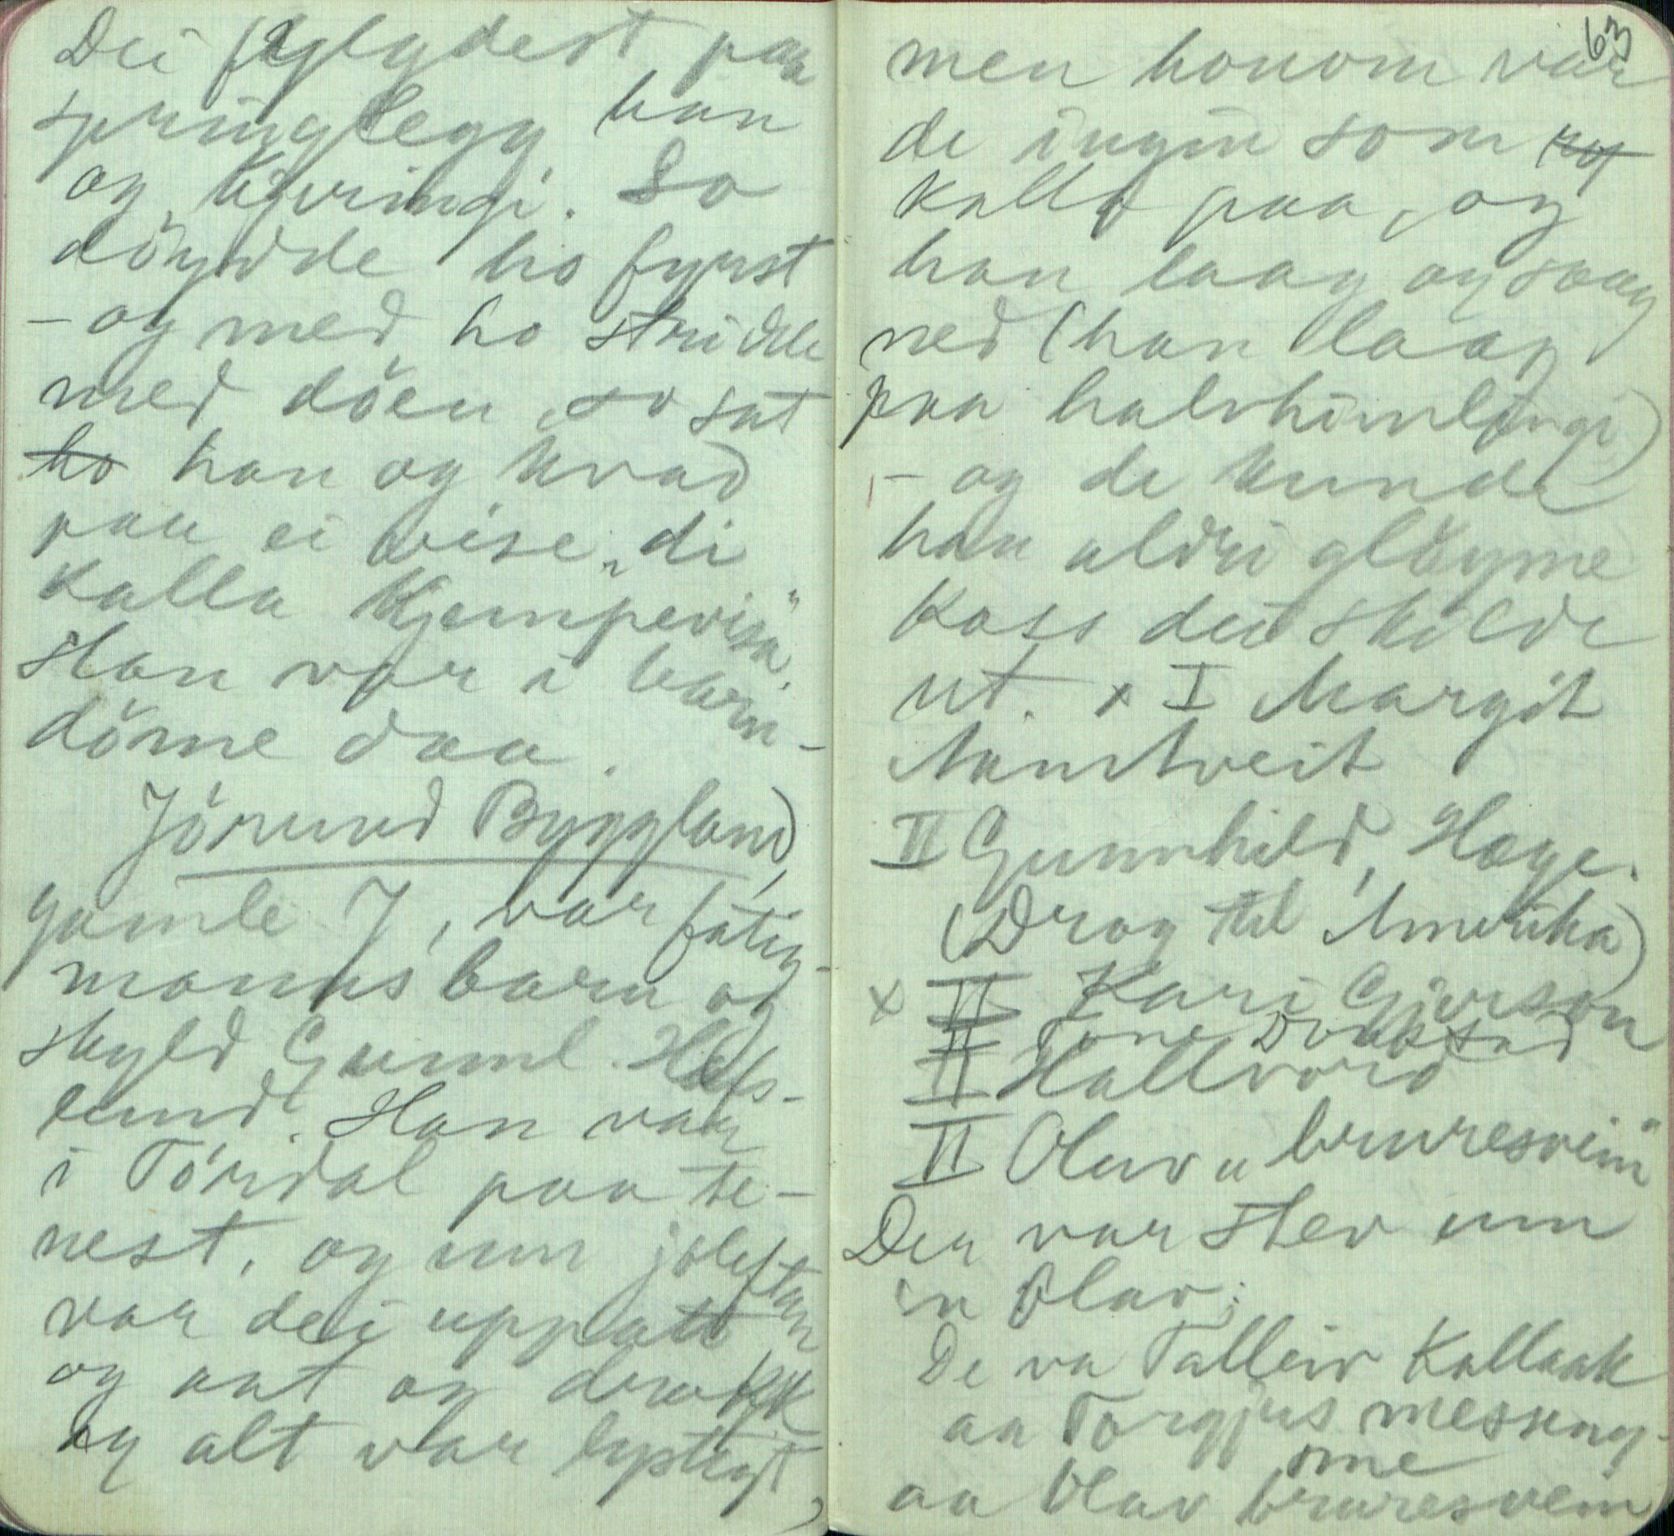 Dei fylgdest paa
springlegg han
og kjeringi. So
döydde ho fyrst
– og med ho stridde
med döen, so sat
ho han og kvad
paa ei vise „di
kalla Kjempevisa".
Han var i barn-
döme daa.
Jörund Byggland,
gamle J, var fatig-
manns barn og
skyld Gunnl. Hefs-
lund. Han var
i Tördal paa te-
nest, og um joleftan
var dei uppatt
og aat og drakk
og alt var lystigt,
63
men honom var
de ingin som
kalla paa, og
han laag og saag
ned (han laag
paa halvhimlingi)
– og de kunde
han aldri glöyme
Koss dei skilde
ut. x I Margit
Aamtveit
II Gunnhild, Hage.
(Drog til Amerika)
x II Kari Gjerson
II Tone
II Hallvord
II Olav „bruresvein"
Der var stev um
in Olav:
De va Talleiv Kallaak
aa Torgjus messing-
ome
aa Olav bruresvein